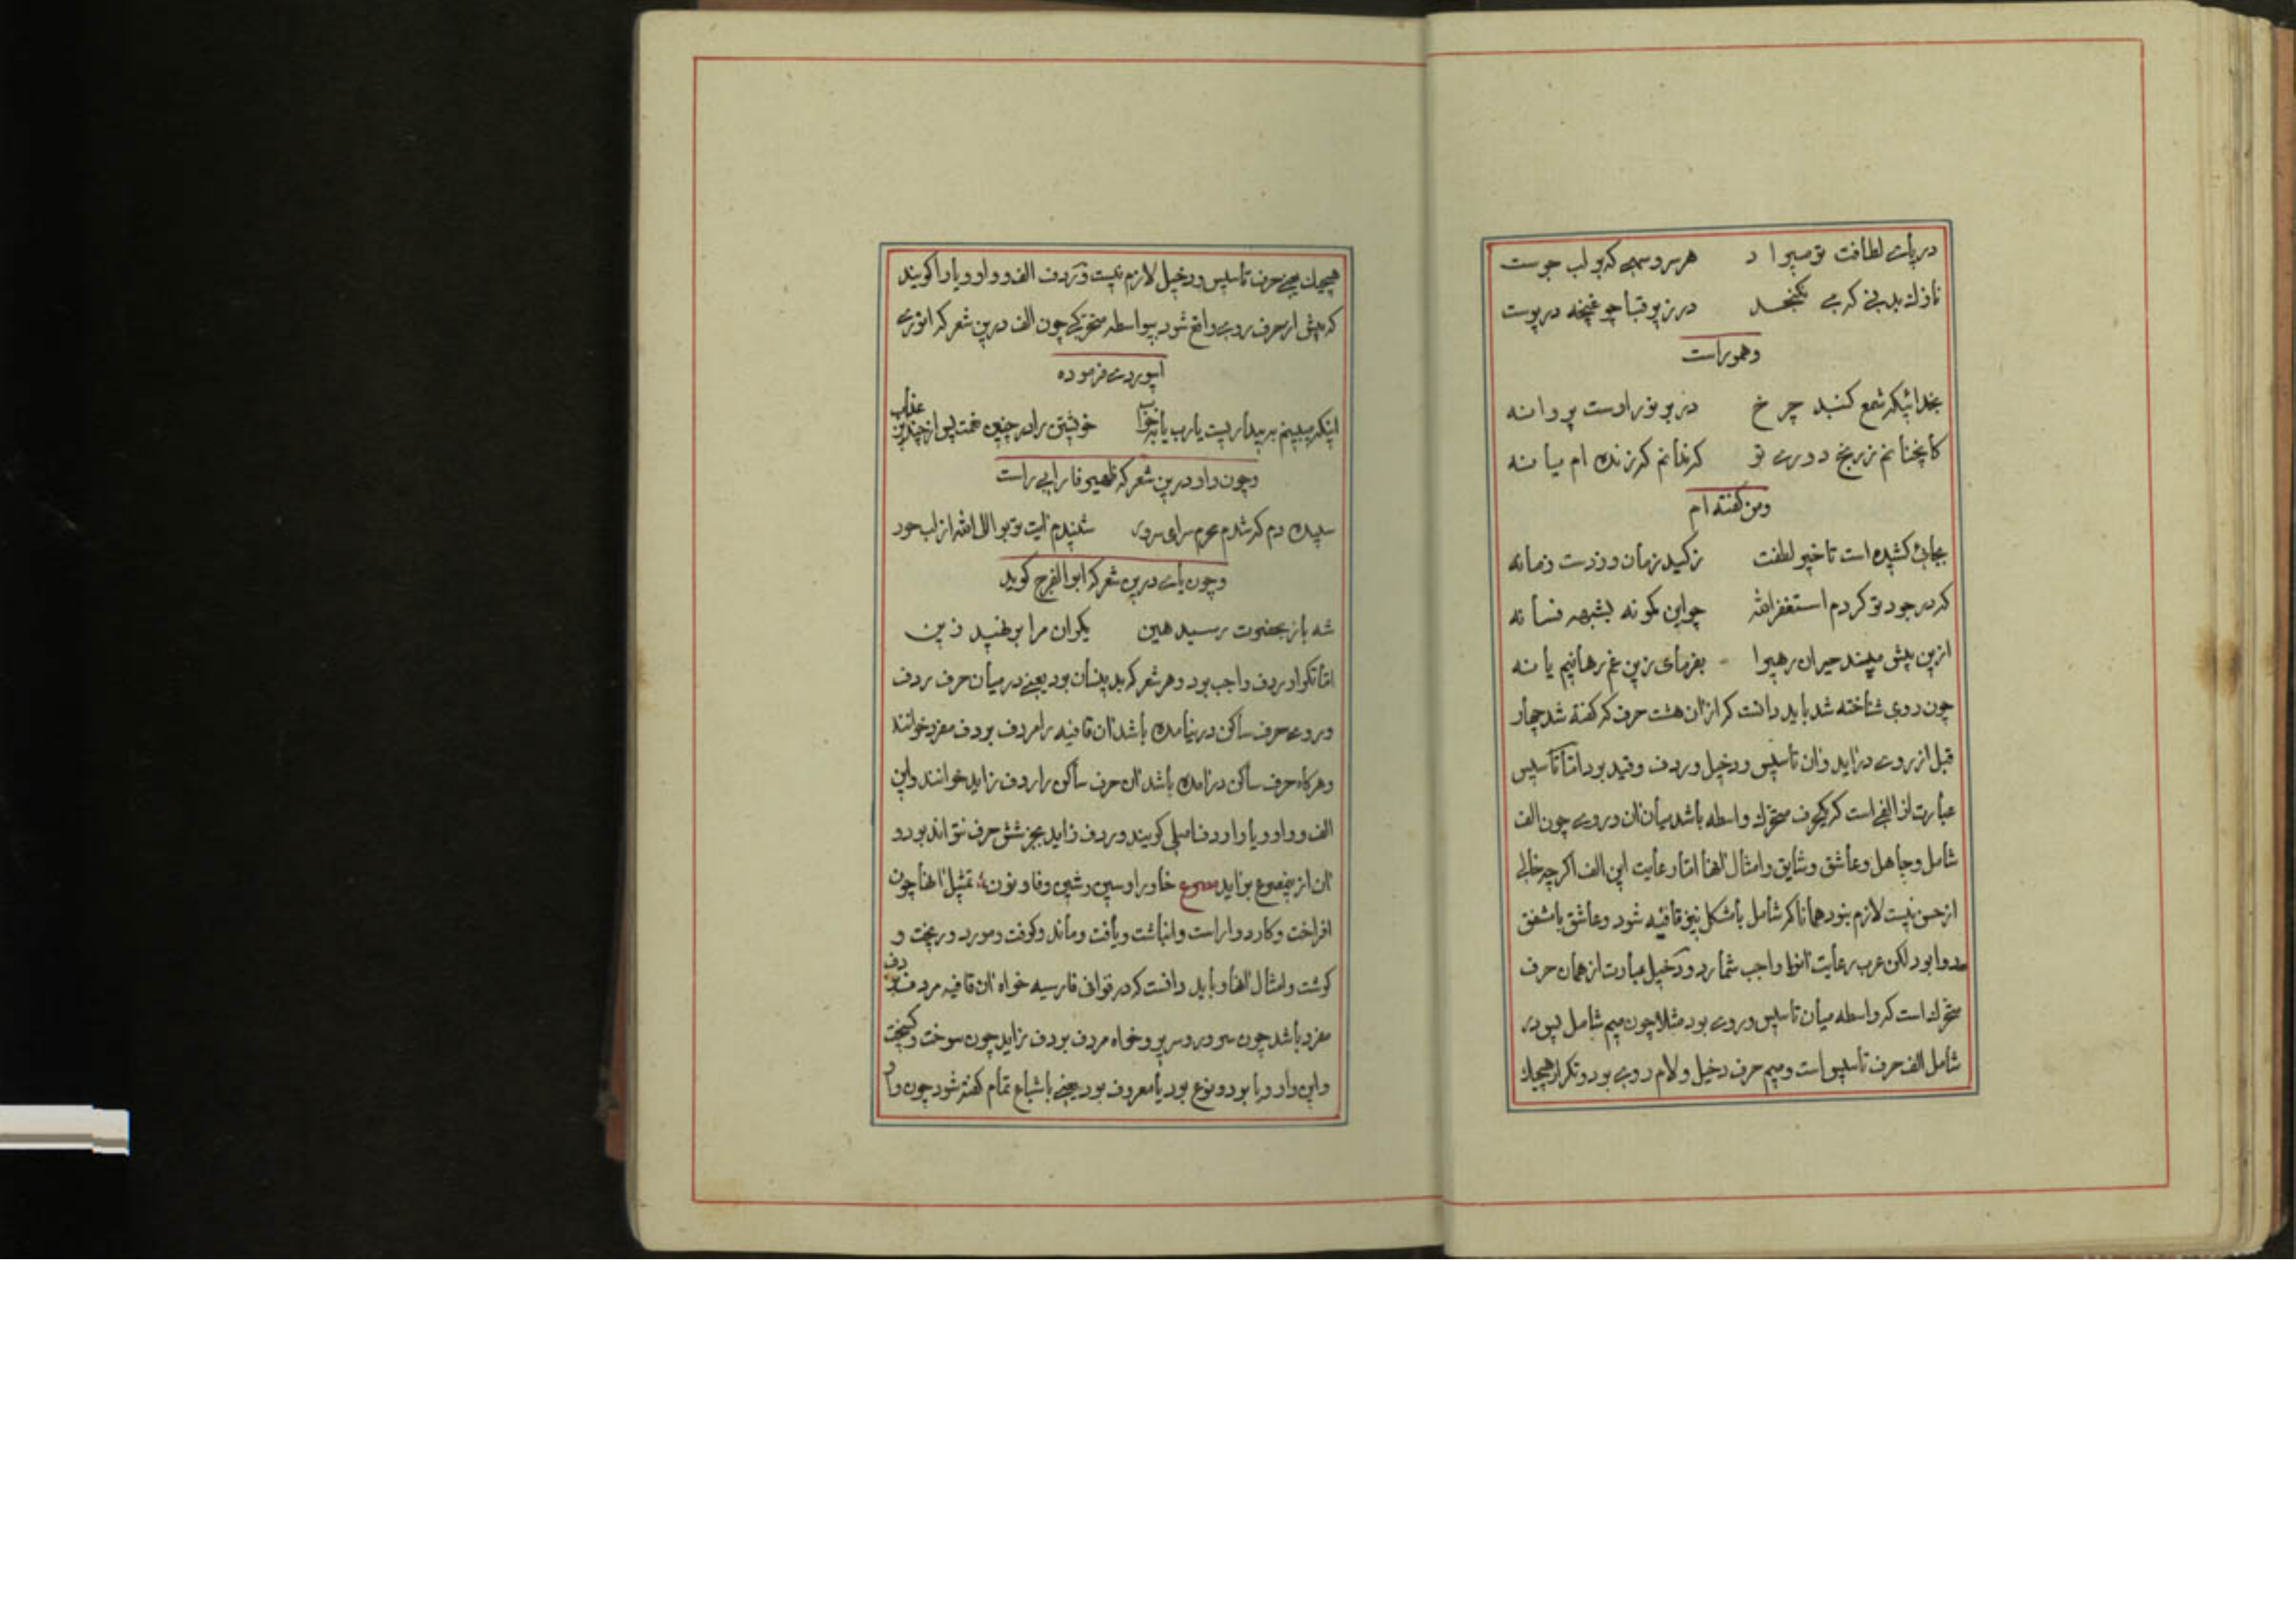 دریای لطافت تو میرا د هر سرو سهی که بر لب جوست
نازك بدنی که می نگنجد در زیر قبا چو غنچه در پوست
وهمو راست
بخدائیکه شمع کنبد چر خ در بر نور اوست پروانه
کانچنانم ز رنج دوری تو که ندانم که زنده ام یا نه
ومن کفته ام
بجائی کشیده است تا خیر لطفت ز کید زمان و ز دست زمانه
که در جود تو کردم استغفرالله چو این کونه بشبهه فسانه
ازین بیش مپسند حیران رهیرا بفرمای زین غم رهانیم یا نه
چون روی شناخته شد باید دانست که ازان هشت حرف که کفته شد چهار
قبل از روی دراید وان تاسیس و دخیل و ردف و قید بود اما تاسیس
عبارت از الفی است که یکحرف متحرك واسطه باشد میان ان و روی چون الف
شامل و جاهل و عاشق و شایق و امثال انها اما رعایت این الف اکر چه خالی
از حسن نیست لازم نبود همانا که شامل با شکل نیز قافیه شود و عاشق با مشفق
روا بود لکن عرب رعایت انرا واجب شمارد و دخیل عبارت از همان حرف
متحرك است که واسطه میان تاسیس و روی بود مثلا چون میم شامل که در
شامل الف حرف تاسیس است و میم حرف دخیل و لام روی بود و تکرار هیچیك
هیچیك یعنی حرف تاسیس و دخیل لازم نیست و ردف الف و واو و یا را کویند
که پیش از حرف روی واقع شود بیواسطه متحرکی چون الف درین شعر که انوری
ابیوردی فرموده
اینکه میبینم به بیداریست یا رب یا بخواب خویشتن را در چنین نعمت پس از چندین عذاب
وچون واو درین شعر که ظهیر فاریابی راست
سپیده دم که شدم محرم سرای سرور شنیدم ایت توبوا الی الله از لب حور
وچون یای درین شعر که ابو الفرج کوید
شه باز بحضرت رسید هین یکران مرا بر نهید زین
اما تکرار ردف واجب بود و هر شعر که بدینسان بود یعنی در میان حرف ردف
و روی حرف ساکن در نیامده باشد ان قافیه را مردف بردف مفرد خوانند
وهر کاه حرف ساکن درامده باشد ان حرف ساکن را ردف زاید خوانند و این
الف و واو و یا را ردف اصلی کویند و ردف زاید بجز شش حرف نتواند بود و
ان از ینمصرع براید مصرع خا و را و سین و شین و فا و نون تمثیل انها چون
افراخت و کارد و اراست و انباشت و یافت و ماند و کوفت و مورد و ریخت و
کوشت و امثال انها و باید دانست که در قوافی فارسیه خواه ان قافیه مردف بردف
مفرد باشد چون سرور و سریر و خواه مردف بردف زاید چون سوخت و کیخت
واین واو و یا بر دو نوع بود یا معروف بود یعنی باشباع تمام کفته شود چون واو